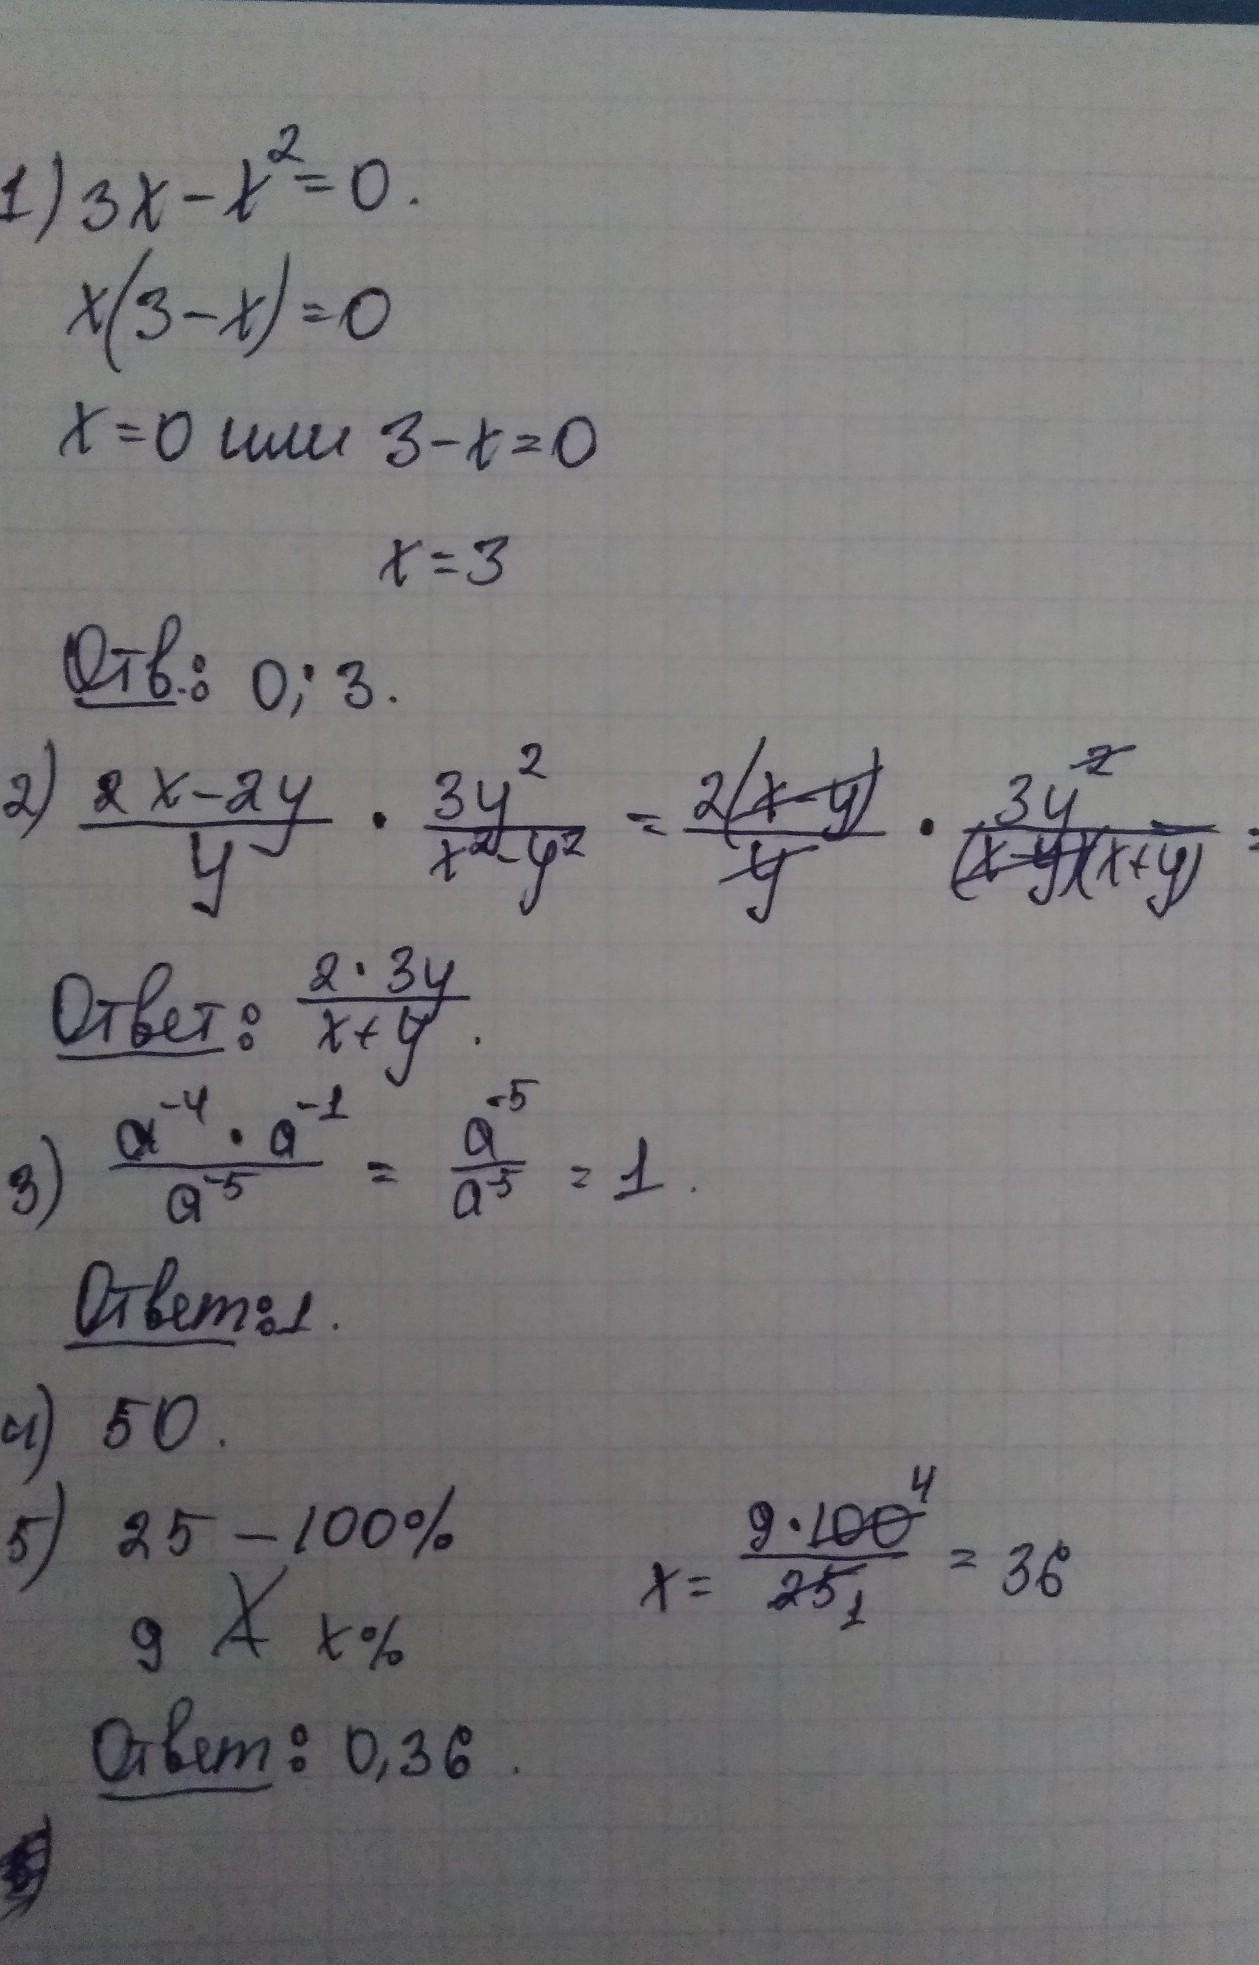 1) 3x - x² = 0.
x(3 - x) = 0
x = 0 или 3 - x = 0
x = 3
Отв.: 0; 3.
2) (2x - 2y)/y · 3y²/(x² - y²) = 2(x - y)/y · 3y²/((x - y)(x + y)) =
Ответ: (2 · 3y)/(x + y).
3) (a⁻⁴ · a⁻¹)/a⁻⁵ = a⁻⁵/a⁻⁵ = 1.
Ответ: 1.
4) 50.
5) 25 – 100%
9 x%
x = (9 · 100 4)/(25 1) = 36
Ответ: 0,36.